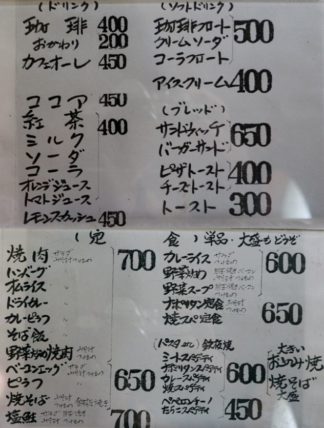 (ドリンク)
珈琲 400
おかわり 200
カフェオーレ 450
ココア 450
紅茶
ミルク
ソーダ
コーラ
オレンジジュース
トマトジュース
400
レモンスカッシュ 450
(ソフトドリンク)
珈琲フロート
クリームソーダ
コーラフロート
500
アイスクリーム 400
(ブレッド)
サンドウィッチ
バーガーサンド
650
ピザトースト
チーズトースト
400
トースト 300
(定食) 単品・大盛もどうぞ
焼肉
ハンバーグ
オムライス
ドライカレー
カレーピラフ
そば飯
野菜炒め焼肉
700
ベーコンエッグ
ピラフ
焼そば
650
塩鮭
700
カレーライス
野菜炒め
野菜スープ
600
ナポリタン定食
焼スパ定食
650
(パスタetc)
ミートスパゲティ
ナポリタンスパゲティ
カレースパゲティ
焼スパゲティ
600
ペペロンチーノ
たらこスパゲティ
450
鉄板焼
大きい
お好み焼
焼そば
大盛